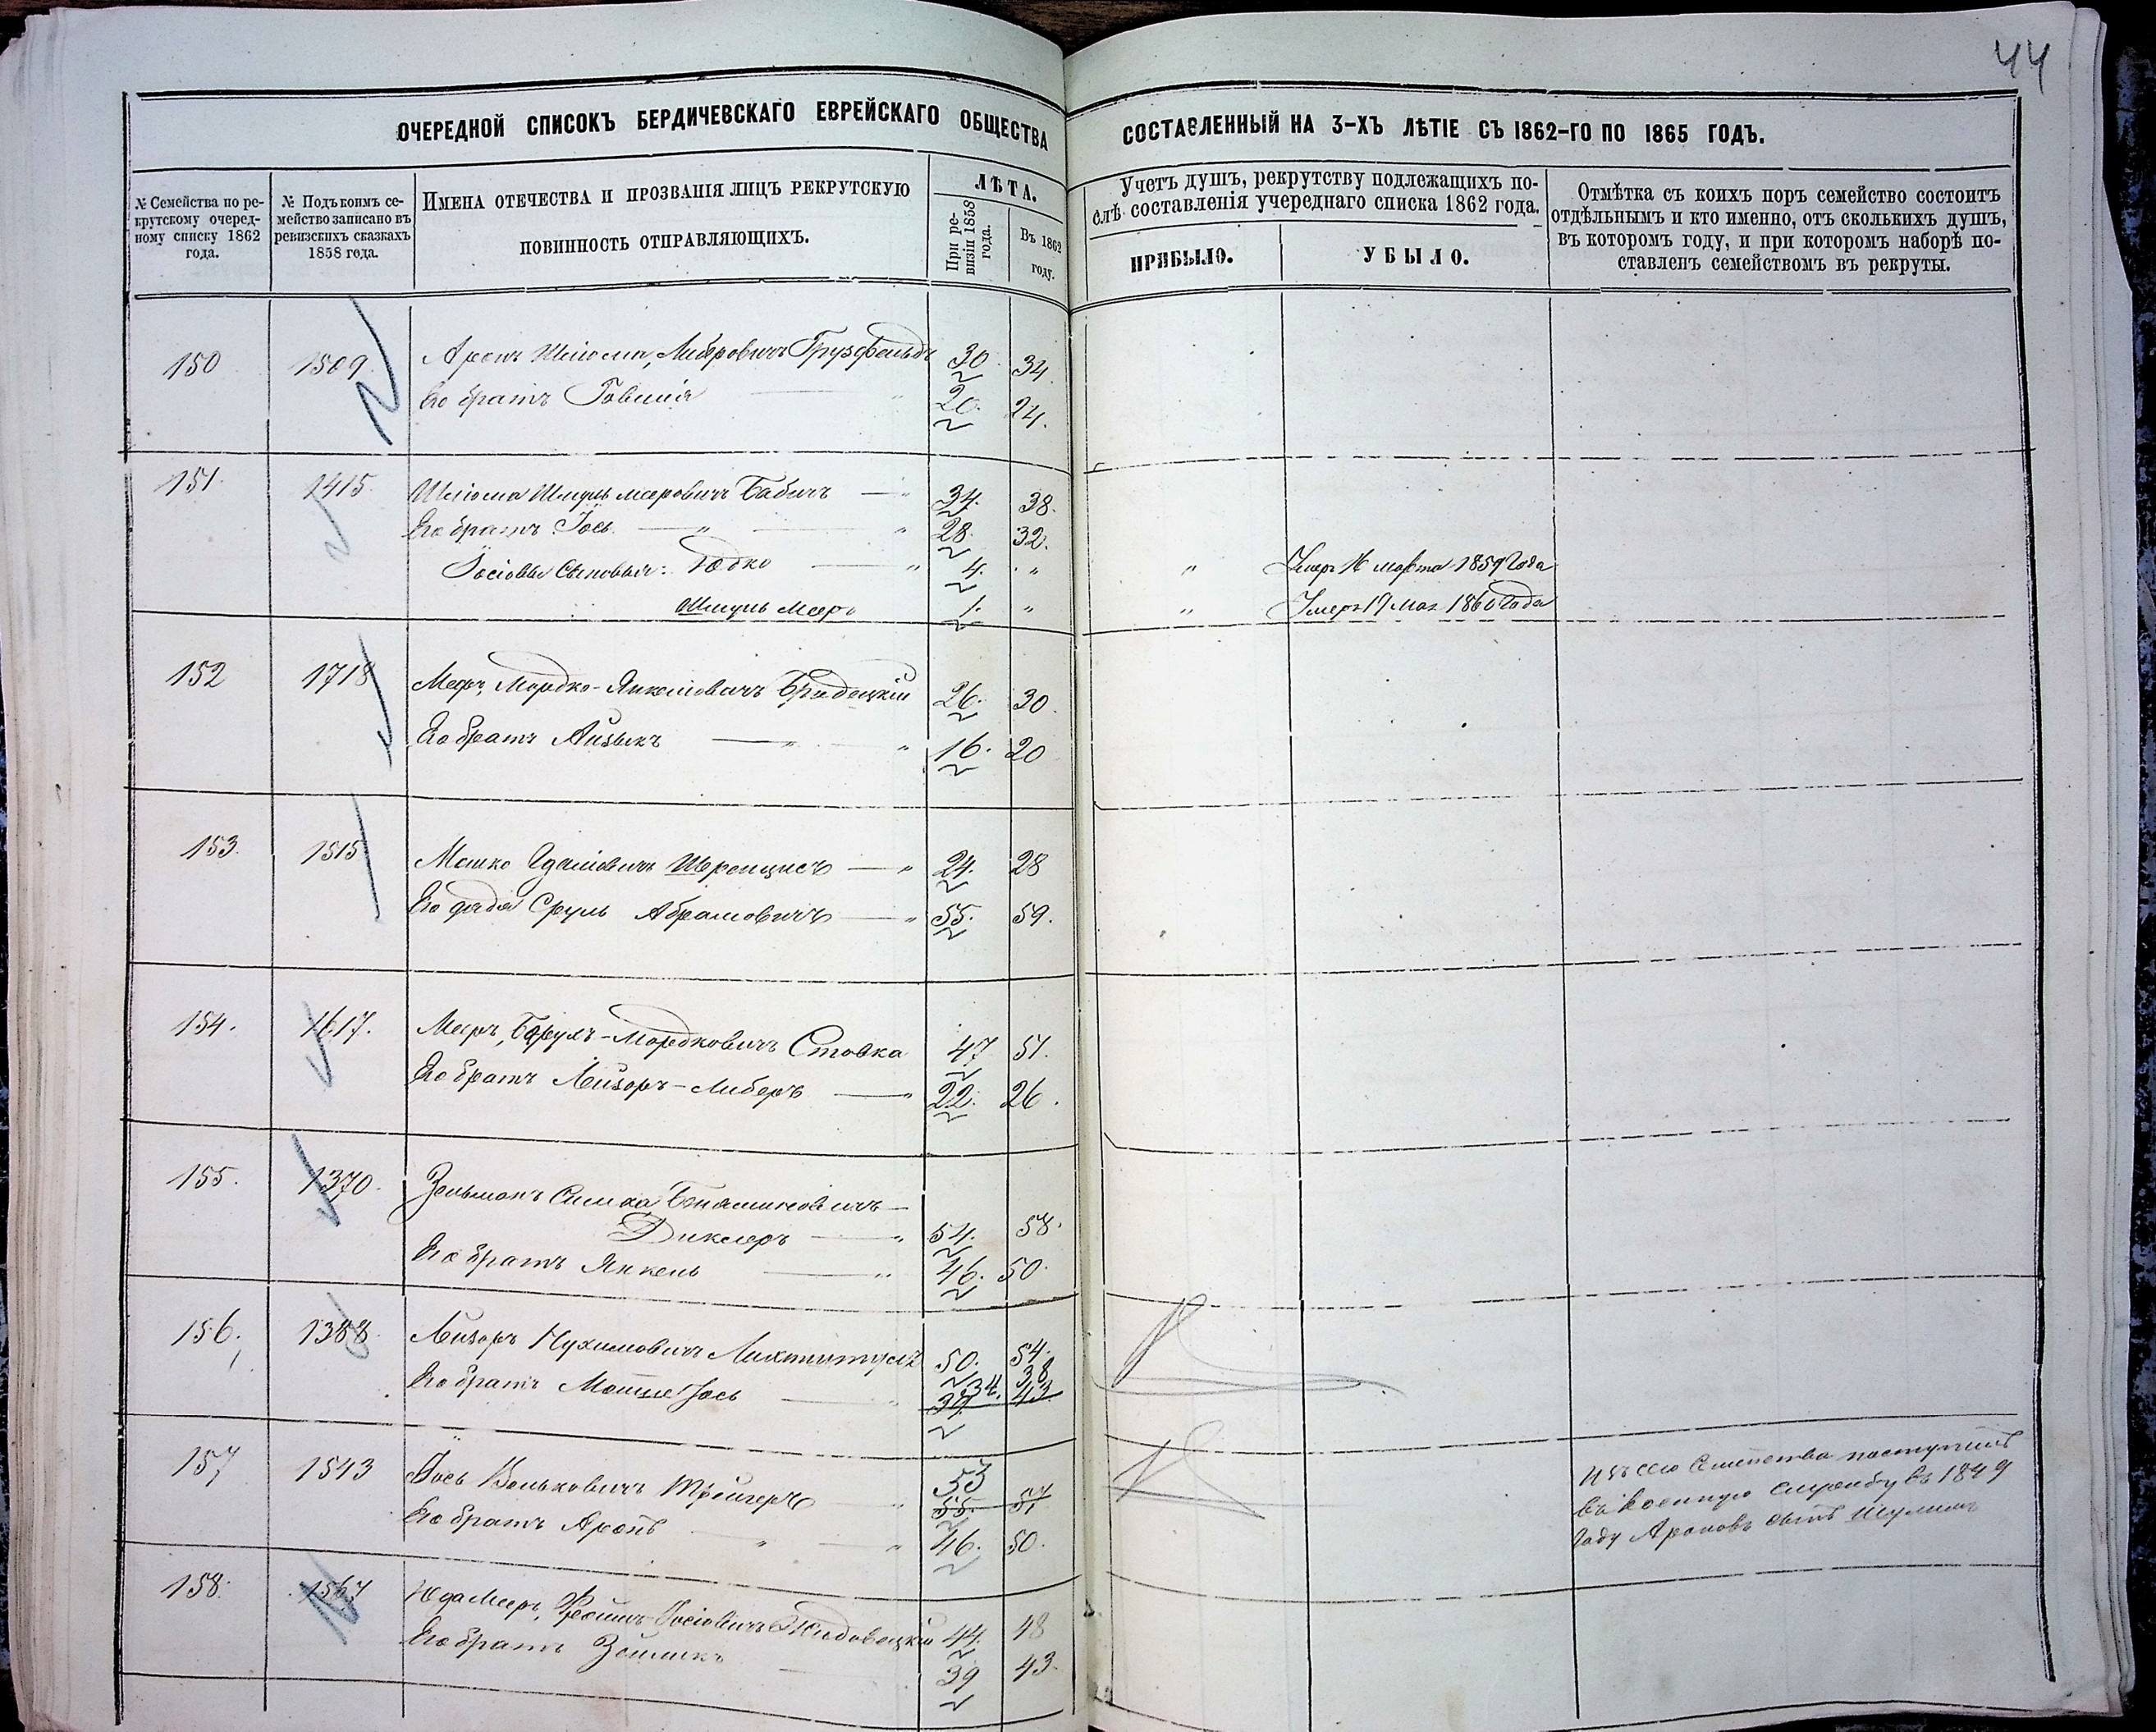 44
ОЧЕРЕДНОЙ СПИСОКЪ БЕРДИЧЕВСКАГО ЕВРЕЙСКАГО ОБЩЕСТВА
СОСТАВЛЕННЫЙ НА 3-ХЪ ЛѢТІЕ СЪ 1862-ГО ПО 1865 ГОДЪ.
№ Семейства по ре-
крутскому очеред-
ному списку 1862
года.
№ Подъ коимъ се-
мейство записано въ
ревизскихъ сказкахъ
1858 года.
Имена отечества и прозванія лицъ рекрутскую
повинность отправляющихъ.
ЛѢТА.
При ре-
визіи 1858
года.
Въ 1862
году.
Учетъ душъ, рекрутству подлежащихъ по-
слѣ составленія учереднаго списка 1862 года.
ПРИБЫЛО.
УБЫЛО.
Отмѣтка съ коихъ поръ семейство состоитъ
отдѣльнымъ и кто именно, отъ сколькихъ душъ,
въ котором году, и при котором наборѣ по-
ставленъ семейством въ рекруты.
150 1509 Аронъ Шлiома, Лейбровичъ Грузфельдъ 30 34
Его братъ Говшія 20. 24.
151. 1415. Шлiома Шмуль Меэровичъ Бабичъ — " 34. 38.
Его братъ Іось — " — " 28. 32.
Іосiовы сыновья: Юдко — " 4. " " Умеръ 16 марта 1859 года
Шмуль Мееръ 1. " " Умеръ 17 мая 1860 года
152 1718 Мееръ, Мордко-Янкелiовичъ Бродецкій 26. 30.
Его братъ Айзыкъ — " — " 16. 20
153. 1515 Мошко Гдалiовичъ — " 24. 28
Его дядя Сруль Абрамовичъ — " 55. 59.
154. 1617. Мееръ, Борухъ-Мордковичъ Ставка 47 51.
Его братъ Лейзоръ-Либеръ — " 22. 26.
155. 1370. Зельманъ Симха Беньяминовичъ —
Диклеръ — " 54. 58.
Его братъ Янкель — " 46. 50.
156. 1388. Лейзоръ Нухимовичъ 50. 54.
34. 38
Его братъ Мошко Іось — " 39. 43.
157 1543 Іось Вольковичъ Трейгеръ — " 53 55. 57
Его братъ Аронъ " — " 46. 50.
Изъ сего семейства поступилъ
въ военную службу въ 1849
году Ароновъ сынъ Шулимъ
158. 1567 Юда Мееръ, Іосiовичъ Жидовецкій 44. 48
Его братъ Зейликъ — 39 43.